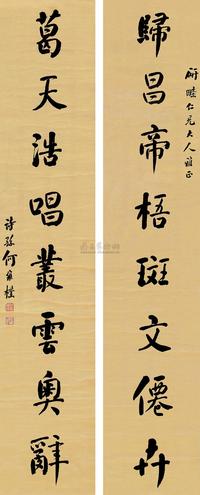 歸昌帝梧斑文僊卉
葛天浩唱叢雲奧辭
仁兄大人雅正
詩孫何維樸